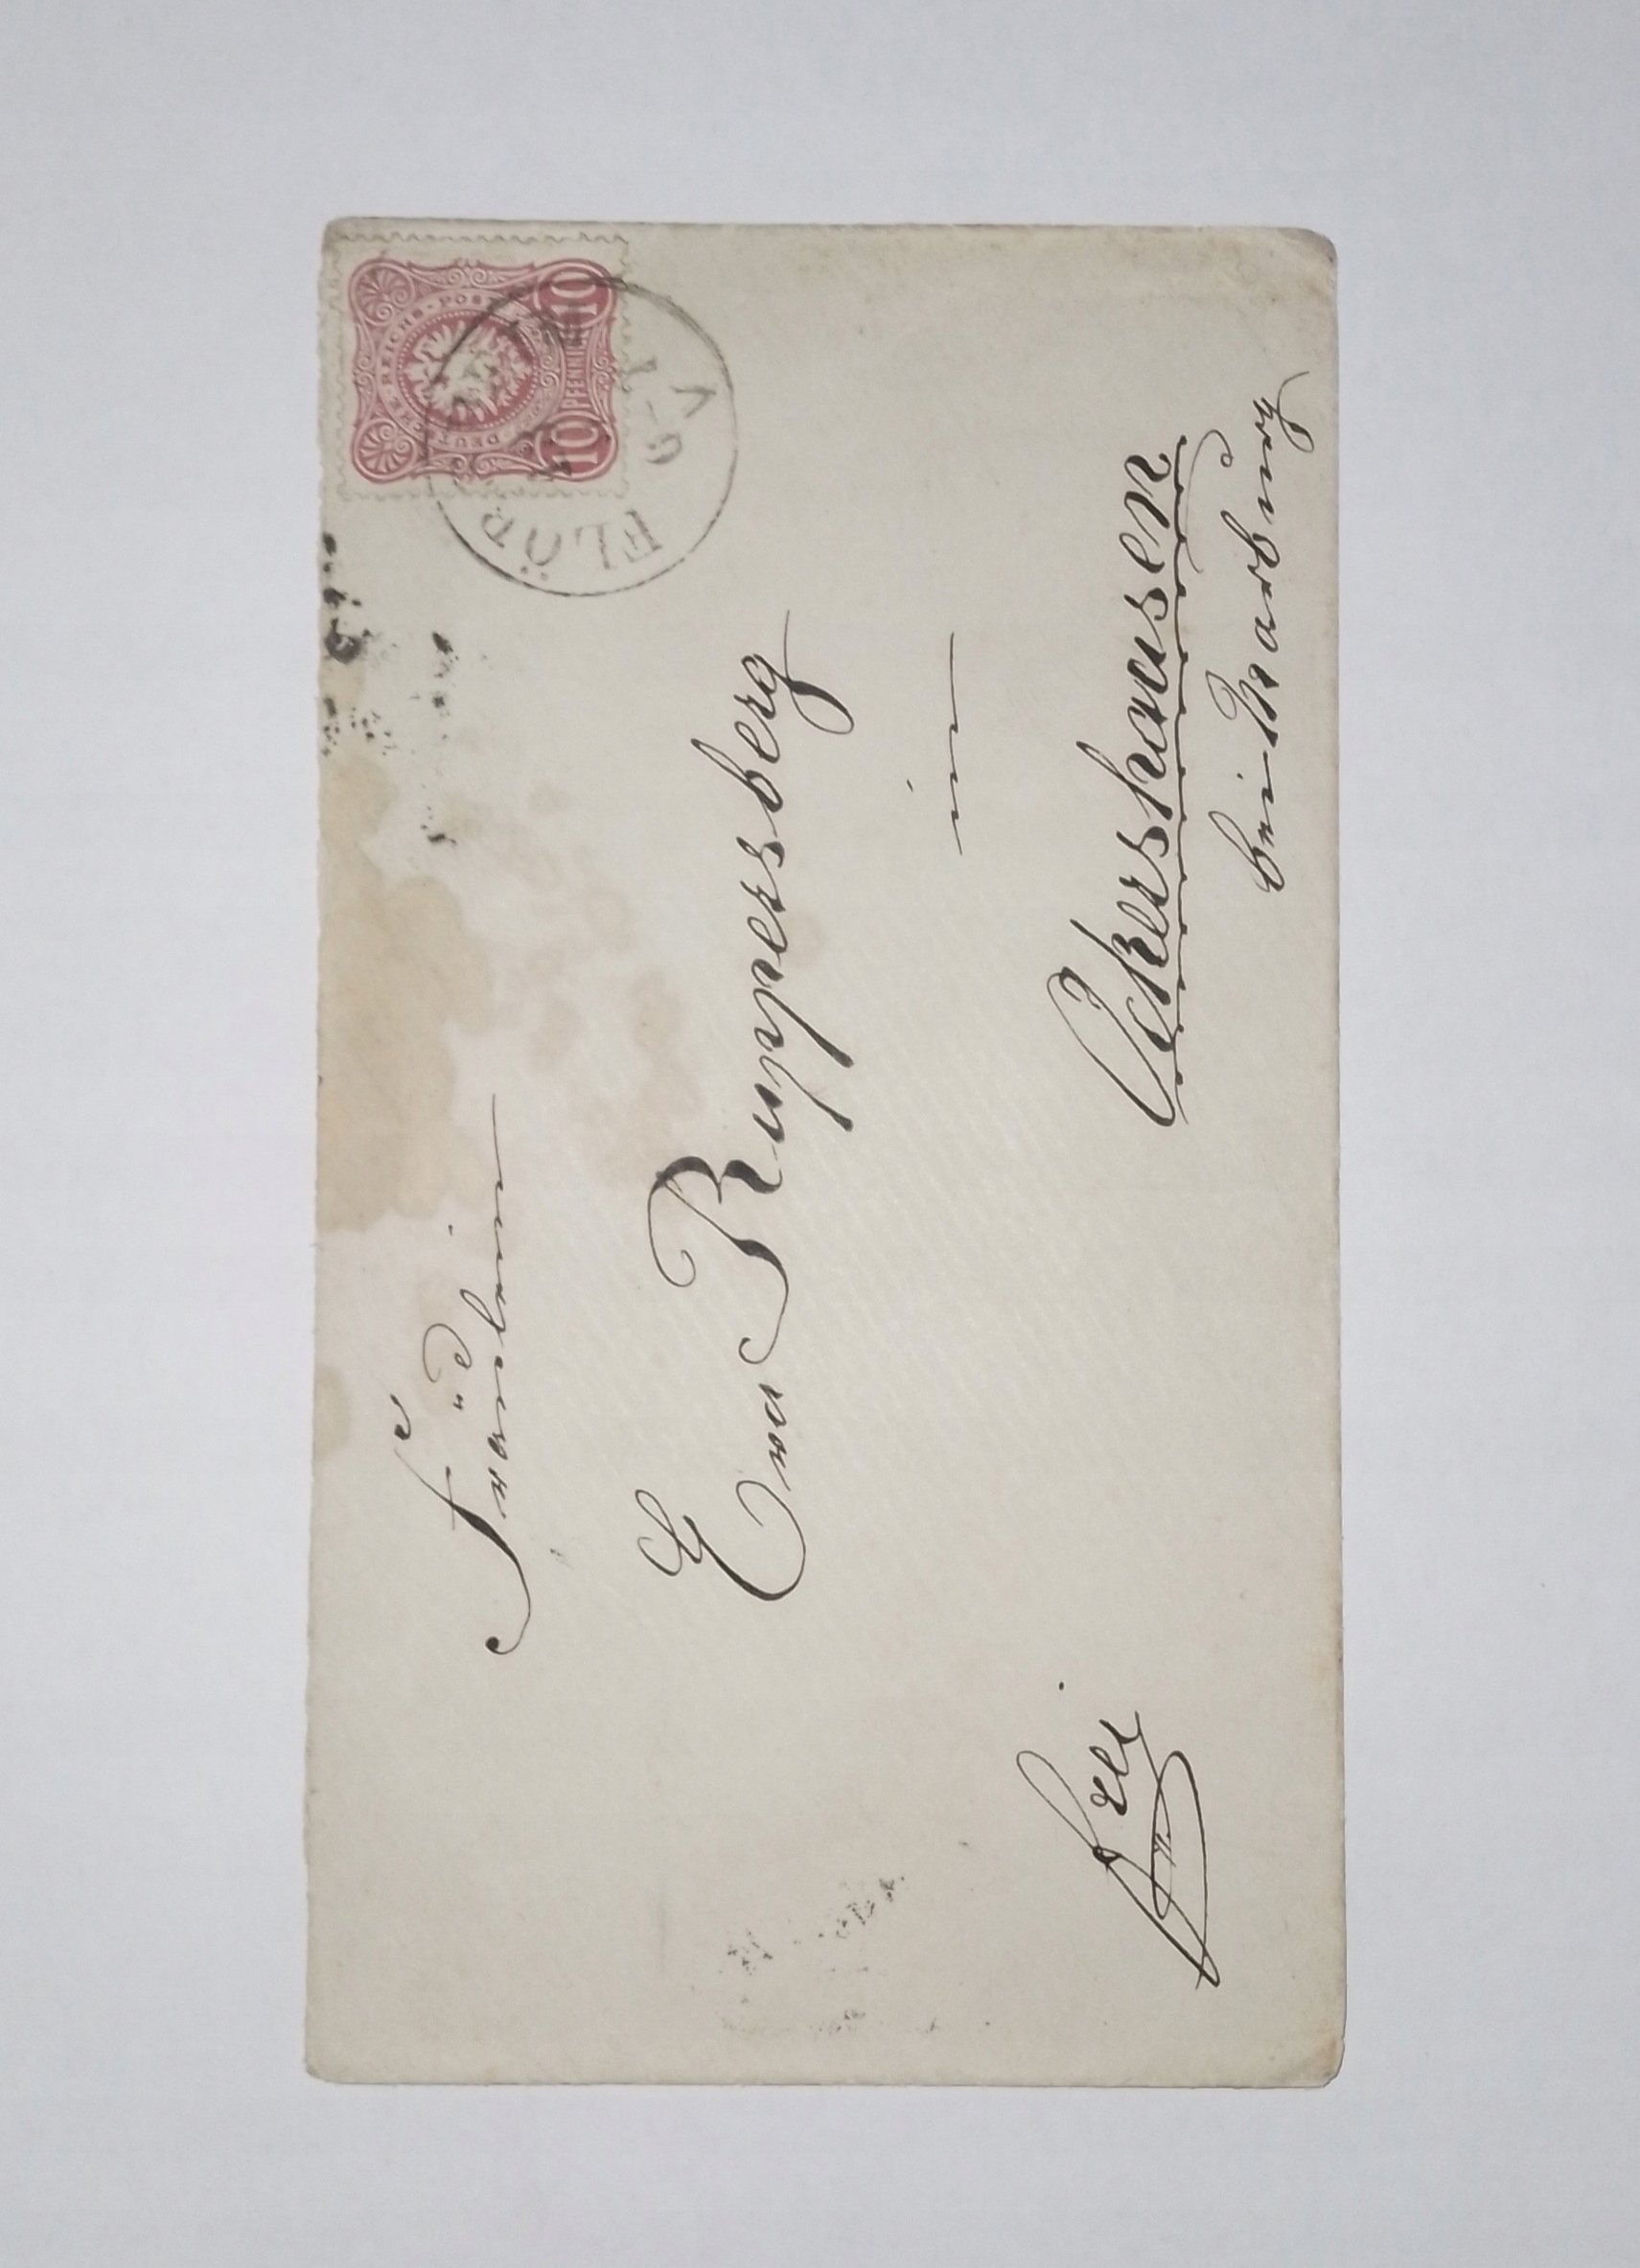 DEUTSCHE REICHS-POST
10 PFENNIG 10
FLÖR
V
Fräulein
Eva Ruppersberg
in
Ockershausen
bei Marburg
Frei.